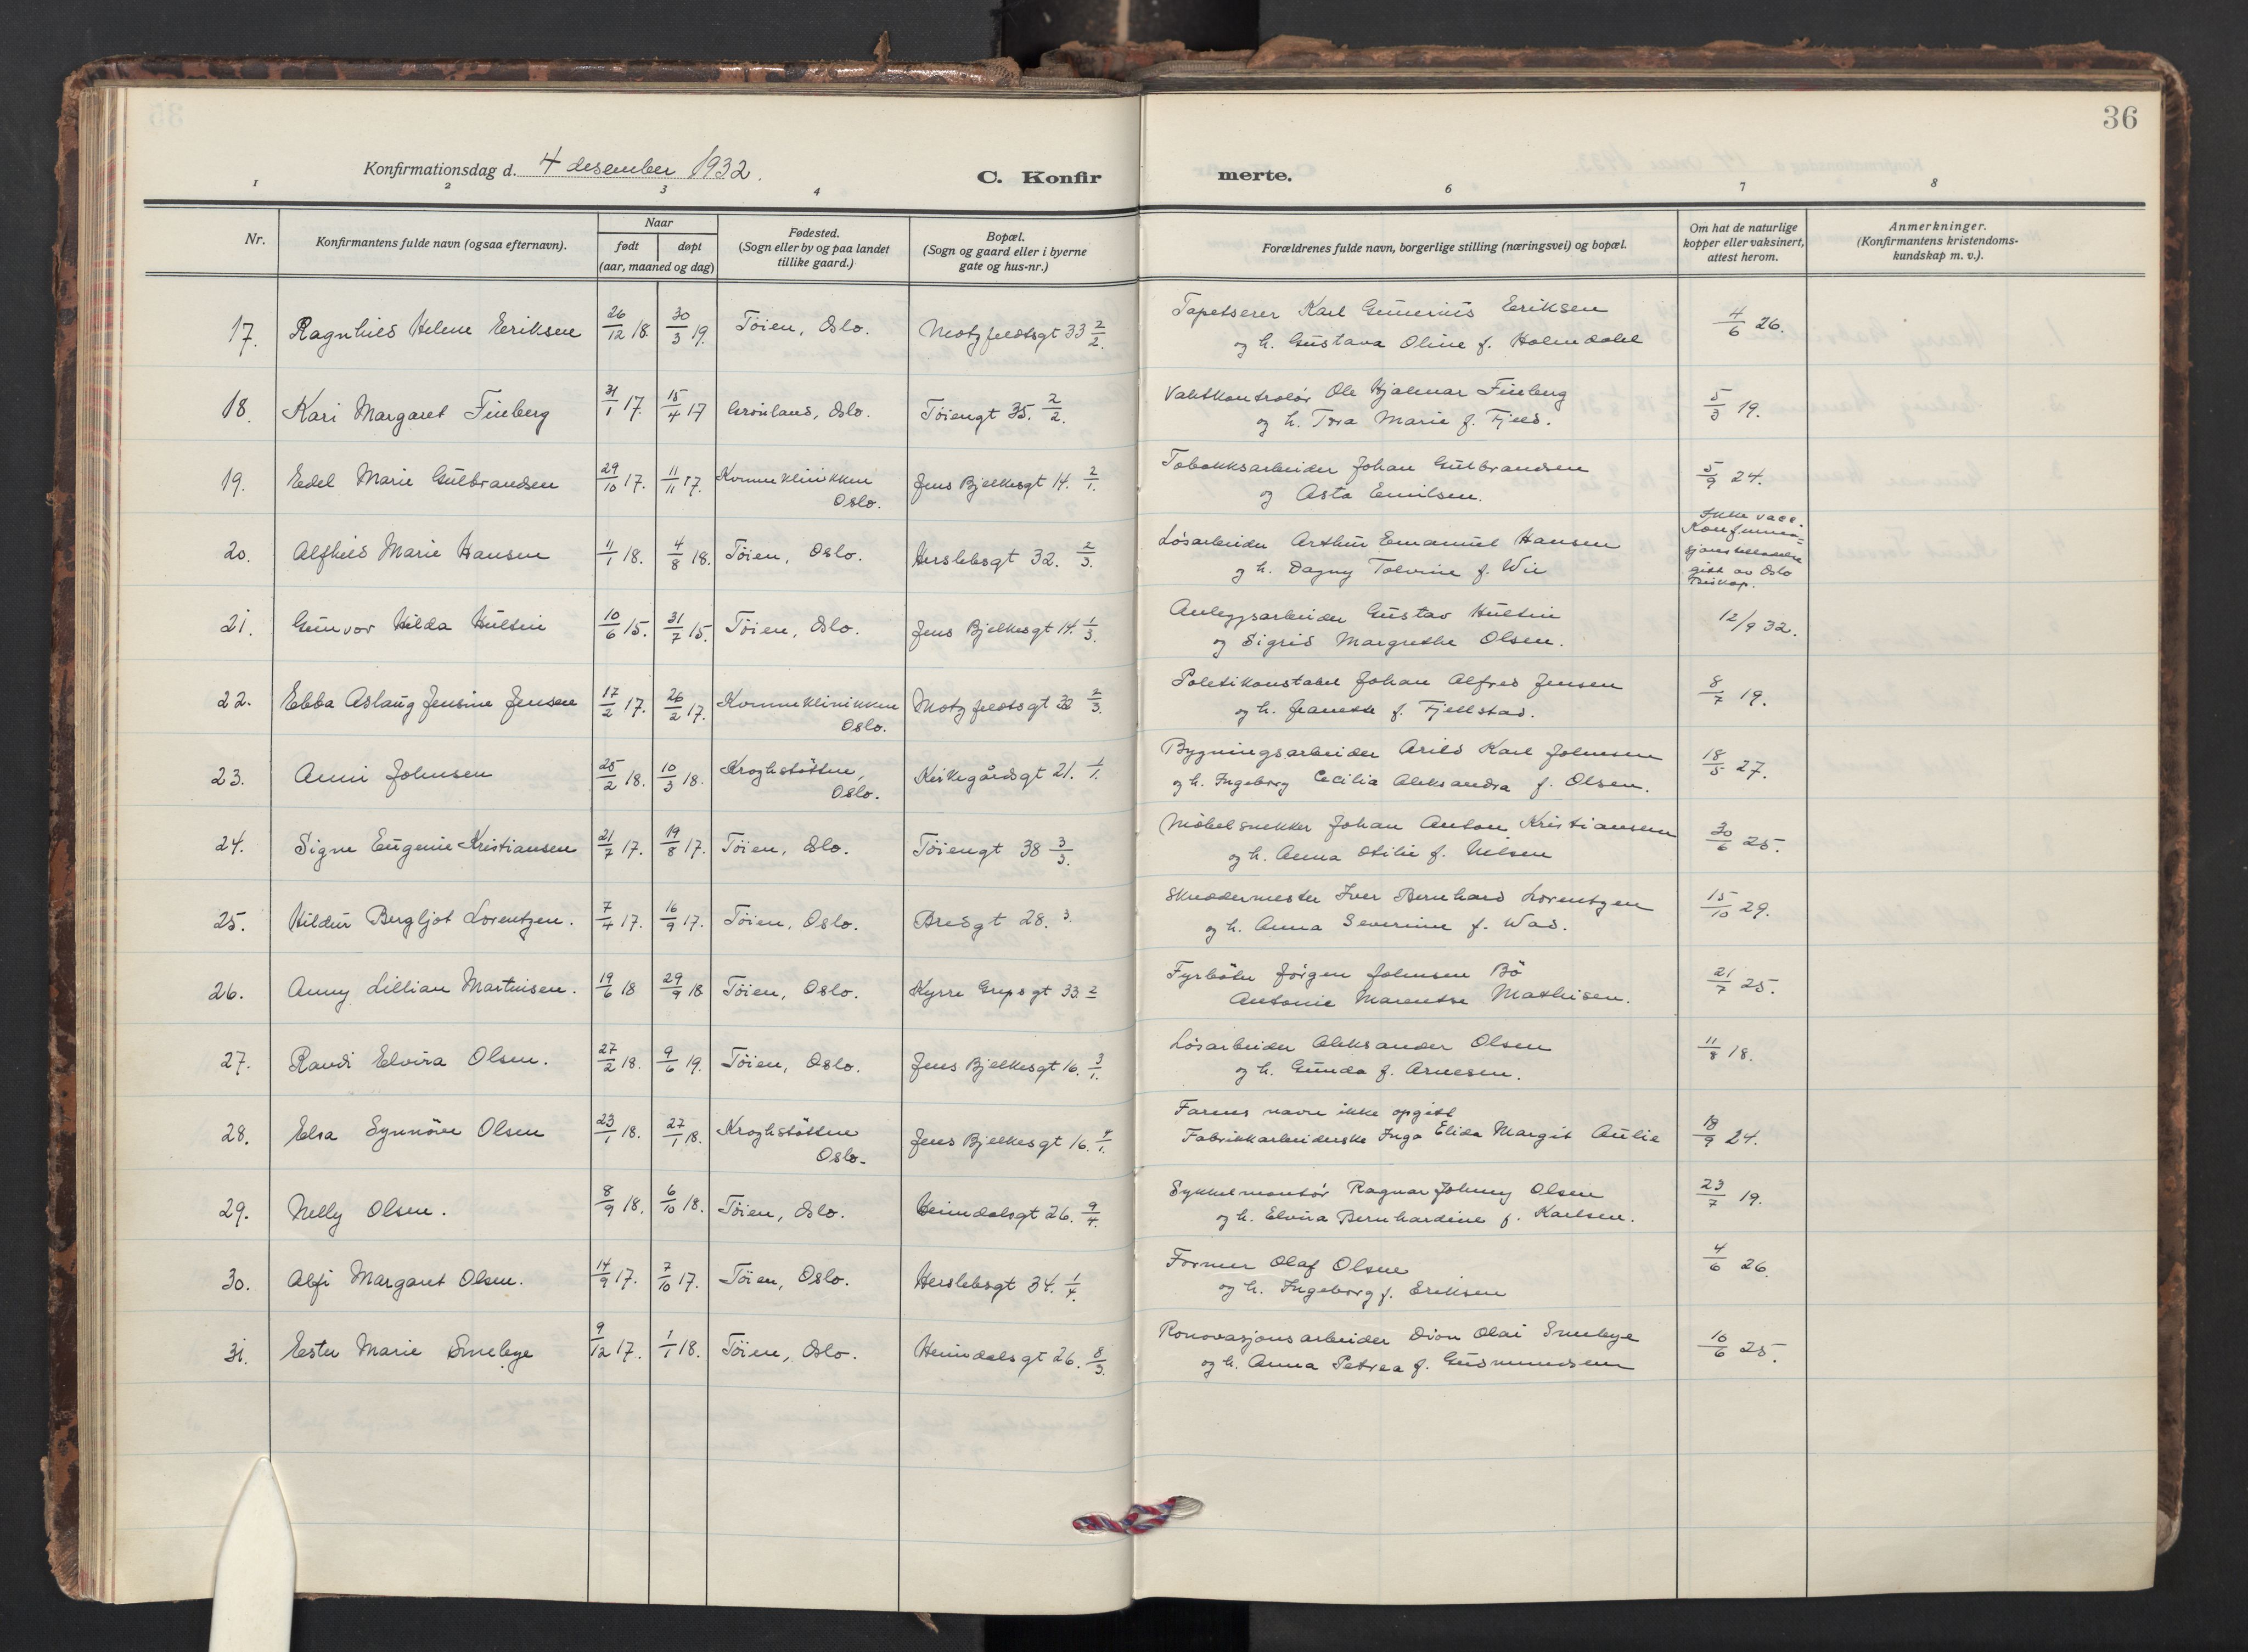 36
Konfirmationsdag d. 4 desember 1932.
C. Konfir
merte.
1 2 3 4 6 7 8
Nr.
Konfirmantens fulde navn (ogsaa efternavn).
Naar
født døpt
(aar, maaned og dag)
Fødested.
(Sogn eller by og paa landet
tillike gaard.)
Bopæl.
(Sogn og gaard eller i byerne
gate og hus-nr.)
Forældrenes fulde navn, borgerlige stilling (næringsvei) og bopæl.
Om hat de naturlige
kopper eller vaksinert,
attest herom.
Anmerkninger.
(Konfirmantens kristendoms-
kundskap m. v.).
17. Ragnhild Helene Eriksen 26/12 18. 30/3 19. Töien, Oslo. Motzfeldtsgt 33 2/2. Tapetserer Karl Gunerius Eriksen 4/6 26.
og h. Gustava Oline f. Holmdahl
18. Kari Margaret Finberg 31/1 17. 15/4 17 Grönland, Oslo. Töiengt 35. 2/2. Vaktkontrolör Ole Hjalmar Finberg 5/3 19.
og h. Tora Marie f. Fjeld.
19. Edel Marie Gulbrandsen 29/10 17. 11/11 17. Kvinneklinikken Jens Bjelkesgt 14. 2/1. Tobakksarbeider Johan Gulbrandsen 5/9 24.
Oslo. og Asta Emilsen.
20. Alfhild Marie Hansen 11/1 18. 4/8 18. Töien, Oslo. Herslebsgt 32. 2/3. Lösarbeider Arthur Emanuel Hansen
og h. Dagny Tolvine f. Wii
Ikke vacc.
Konfirma-
sjonstillatelse
gitt av Oslo
Biskop.
21. Gunvor Hilda Hultin 10/6 15. 31/7 15. Töien, Oslo. Jens Bjelkesgt 14. 1/3. Anleggsarbeider Gustav Hultin 12/9 32.
og Sigrid Margrethe Olsen.
22. Ebba Aslaug Jensine Jensen 17/2 17. 26/2 17. Kvinneklinikken Motzfeldtsgt 2/3. Politikonstabel Johan Alfred Jensen 8/7 19.
Oslo. og h. Jeanette f. Fjellstad.
23. Anni Johnsen 25/2 18. 10/3 18. Kroghstötten, Kirkegårdsgt 21. 1/1. Bygningsarbeider Arild Karl Johnsen 18/5 27.
Oslo. og h. Ingeborg Cecilia Aleksandra f. Olsen.
24. Signe Eugenie Kristiansen 21/7 17. 19/8 17. Töien, Oslo. Töiengt 38 3/3. Möbelsnekker Johan Anton Kristiansen 30/6 25.
og h. Anna Otilie f. Nilsen
25. Hildur Bergljot Lorentzen. 7/4 17. 16/9 17. Töien, Oslo. Bredgt 28. 3. Skreddermester Iver Bernhard Lorentzen 15/10 29.
og h. Anna Severine f. Wad.
26. Anny Lillian Martinsen. 19/6 18 29/9 18 Töien, Oslo. Kyrre Grepsgt 33. 2 Fyrböter Jörgen Johnsen Bö 21/7 25.
Antonie Marentse Mathisen.
27. Randi Elvira Olsen. 27/2 18. 9/6 19. Töien, Oslo. Jens Bjelkesgt 16. 3/1. Lösarbeider Aleksander Olsen 11/8 18.
og h. Gunda f. Arnesen.
28. Elsa Synnöve Olsen 23/1 18. 27/1 18. Kroghstötten Jens Bjelkesgt 16. 4/1. Farens navn ikke opgitt 18/9 24.
Oslo. Fabrikkarbeiderske Inga Elida Margit Aulie
29. Nelly Olsen. 8/9 18. 6/10 18. Töien, Oslo. Heimdalsgt 26. 9/4. Sykkelmontör Ragnar Johnny Olsen 23/7 19.
og h. Elvira Bernhardine f. Karlsen.
30. Alfi Margaret Olsen. 14/9 17. 7/10 17. Töien, Oslo. Herslebsgt 34. 1/4. Former Olaf Olsen 4/6 26.
og h. Ingeborg f. Eriksen
31. Ester Marie Smebye 9/12 17. 1/1 18. Töien, Oslo. Heimdalsgt 26. 8/3. Renovasjonsarbeider Dion Olai Smebye 10/6 25.
og h. Anna Petrea f. Gudmundsen